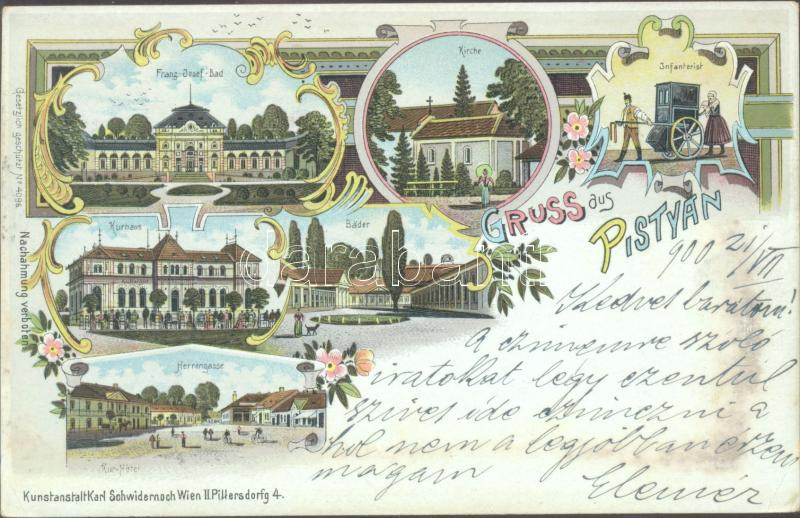 Franz-Josef-Bad
Kirche
Infanterist
Gesetzlich geschützt No 4096
Nachahmung verboten
Kurhaus
Bäder
GRUSS aus
PISTYÁN
darabanth
Herrengasse
Kur-Hôtel
900 21/VII
Kedves barátom!
A czimemre szóló
iratokat légy ezentúl
szíves ide czimezni a
hol nem a legjobban érzem
magam
Elemér
Kunstanstalt Karl Schwidernoch Wien II. Pillersdorfg 4.